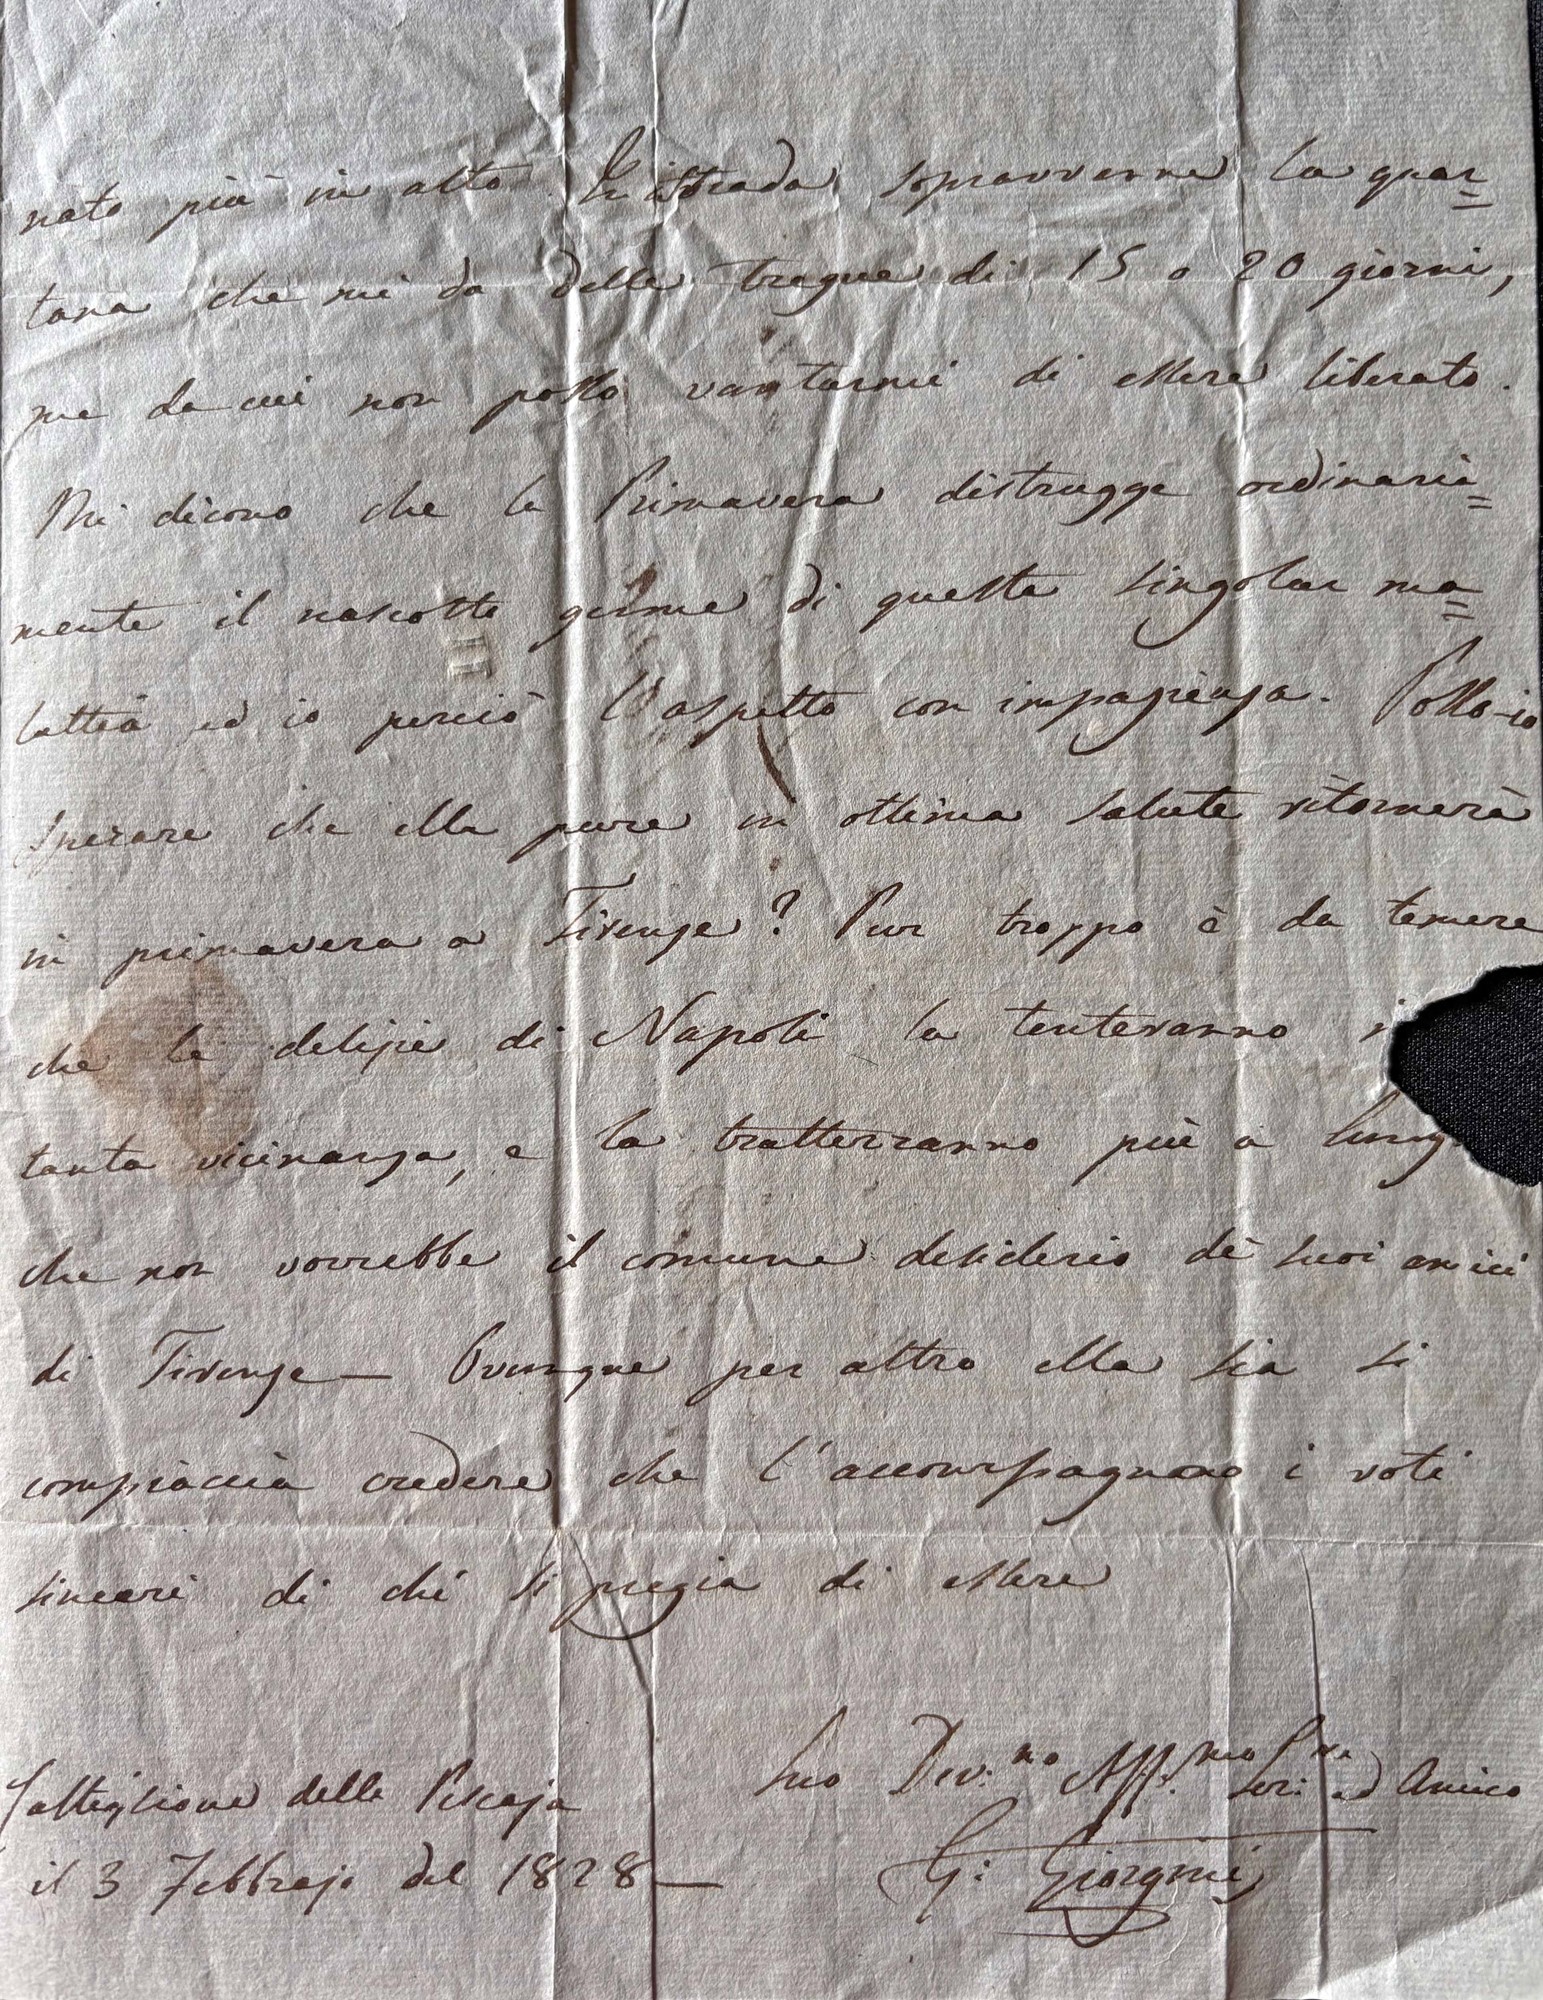 nato più in alto In istrada sopravvenne la quar=
tana che mi da delle tregue di 15 o 20 giorni,
ma da cui non posso vantarmi di essere liberato.
Mi dicono che la Primavera distrugge ordinaria=
mente il nascosto germe di questa singolar ma=
lattia ed io perciò l'aspetto con impazienza. Posso-io
sperare che ella pure in ottima salute ritornerà
in primavera a Firenze? Pur troppo è da temere
che le delizie di Napoli la tenteranno i
tanta vicinanza, e la tratterranno più a lung
che non vorrebbe il comune desiderio de suoi amici
di Firenze — Ovunque per altro ella sia si
compiaccia credere che l'accompagnano i voti
sinceri di chi si pregia di essere
Suo Dev:mo Aff:mo Ser:re ed Amico
G: Giorgini
Castiglione della Pescaja
il 3 Febbrajo del 1828 —